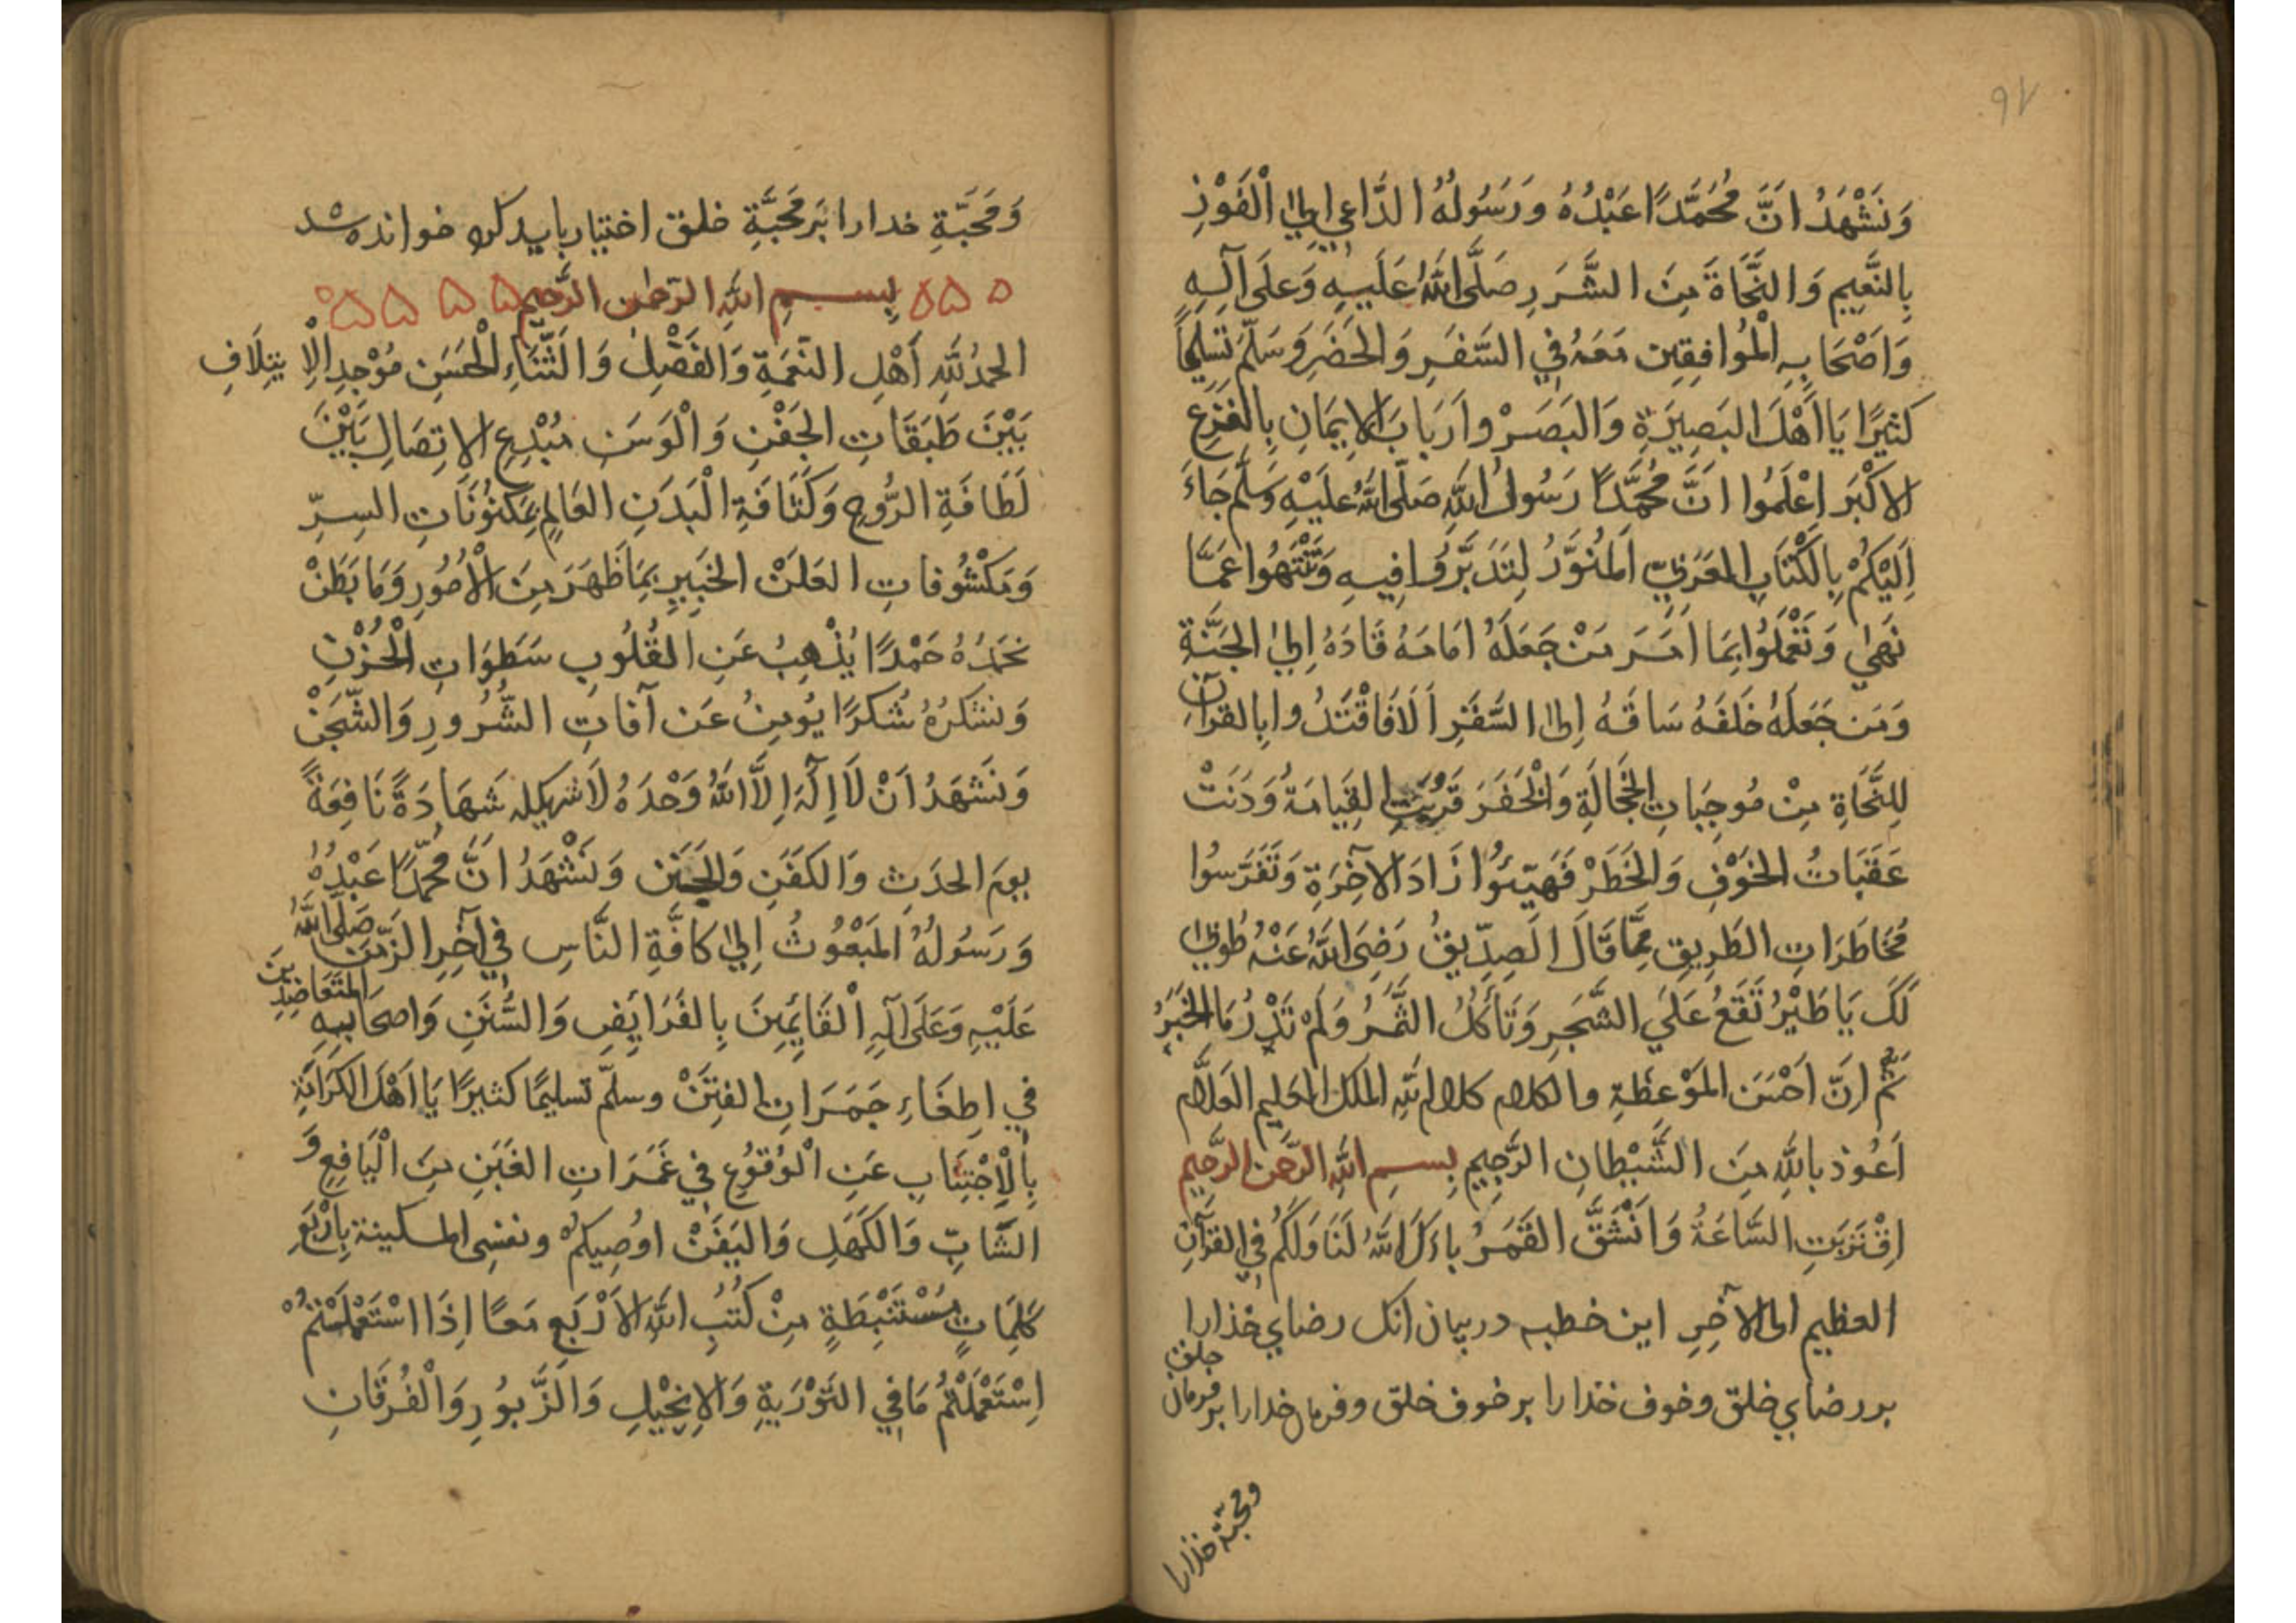 ۹۷
وَنَشْهَدُ اَنَّ مُحَمَّدًا عَبْدُهُ وَرَسُولُهُ الدَّاعِي اِلَى الْفَوْزِ
بِالنَّعِيمِ وَالنَّجَاةَ مِنَ الشَّرَرِ صَلَّى اللَّهُ عَلَيْهِ وَعَلَى آلِهِ
وَاَصْحَابِهِ الْمُوَافِقِين مَعَهُ فِي السَّفَرِ وَالْحَضَرِ وَسَلَّمَ تَسْلِيمًا
كَثِيرًا يَا اَهْلَ الْبَصِيرَةِ وَالْبَصَرْ وَاَرْبَابَ الْاِيمَانِ بِالْفَزَعِ
الْاَكْبَر اِعْلَمُوا اَنَّ مُحَمَّدًا رَسُولُ اللَّهِ صَلَّى اللَّهُ عَلَيْهِ وَسَلَّمَ جَاءَ
اِلَيْكُمْ بِالْكِتَابِ الْعَرَبِيِّ الْمُنَوَّرُ لِتَدَبَّرُوا فِيهِ وَتَنْتَهُوا عَمَّا
نَهَى وَتَعْمَلُوا بِمَا اَمَرَ مَنْ جَعَلَهُ اَمَامَهُ قَادَهُ اِلَى الْجَنَّةِ
وَمَن جَعَلَهُ خَلْفَهُ سَاقَهُ اِلَى السَّقَرِ اَلَا فَاقْتَدُوا بِالْقُرْآنِ
لِلنَّجَاةِ مِنْ مُوجِبَاتِ الْخَجَالَةِ وَالْخَفَرَ قَرُبَتِ الْقِيَامَةُ وَدَنَتْ
عَقَبَاتُ الْخَوْفِ وَالْخَطَرْ فَهَيِّئُوا زَادَ الْآخِرَةِ وَتَفَرَّسُوا
مُخَاطَرَاتِ الطَّرِيقِ مِمَّا قَالَ الصِّدِّيقُ رَضِيَ اللَّهُ عَنْهُ طُوبَى
لَكَ يَا طَيْرُ تَقَعُ عَلَى الشَّجَرِ وَتَأْكُلُ الثَّمَرُ وَلَمْ تَدْرِ مَا الْخَبَرُ
ثُمَّ اِنَّ اَحْسَنَ الْمَوْعِظَةِ وَالْكَلَام كَلَام اللَّهِ الْمَلِكِ الْعَلِيم الْعَلَّام
اَعُوذ بِاللَّهِ مِنَ الشَّيْطَانِ الرَّجِيمِ بِسمِ اللَّهِ الرَّحْمَنِ الرَّحِيمِ
اِقْتَرَبَتِ السَّاعَةُ وَانْشَقَّ الْقَمَرُ بَارَكَ اللَّهُ لَنَا وَلَكُمْ فِي الْقُرْآنِ
العظيم الى الآخِرِ این خطبه در بیان انک رضای خذارا
بر رضای خلق وخوف خذارا بر خوف خلق وفرمان خدارا بر فرمان خلق
ومحبة خذارا
وَمَحَبَّةِ خدارا بَر مَحَبَّةِ خلق اختیار باید کرد خوانده شد
بِسمِ اللَّهِ الرَّحْمَنِ الرَّحِيمِ
الْحَمْدُ لِلَّهِ أَهْلِ النِّعْمَةِ وَالْفَضْلِ وَالثَّنَاءِ الْحَسَنِ مُوْجِدِ الْاِيتِلَافِ
بَيْنَ طَبَقَاتِ الْجَفْنِ وَالْوَسَنِ مُبْدِعِ الْاِتِصَالِ بَيْنَ
لَطَافَةِ الرُّوحِ وَكَثَافَةِ الْبَدَنِ الْعَالِمِ بِمَكْنُونَاتِ السِّرِّ
وَمَكْشُوفَاتِ الْعَلَنْ الْخَبِيرِ بِمَا ظَهَرَ مِنَ الْاُمُورِ وَمَا بَطَنْ
نَحْمَدُهُ حَمْدًا يُذْهِبُ عَنِ الْقُلُوبِ سَطَوَاتِ الْحُزْنِ
وَنَشْكُرُهُ شُكْرًا يُومِنُ عَن آفَاتِ الشُّرُورِ وَالشَّجَنْ
وَنَشْهَدُ اَنْ لَا اِلَهَ اِلَّا اللَّهُ وَحْدَهُ لَا شَرِيكَ لَهُ شَهَادَةً نَافِعَةً
يومَ الْحَدَثِ وَالْكَفَنِ وَالْجَنَنِ وَنَشْهَدُ اَنَّ مُحَمَّدًا عَبْدُهُ
وَرَسُولُهُ الْمَبْعُوثُ اِلَى كَافَّةِ النَّاسِ فِي آخِرِ الزَّمَنِ صَلَّى اللَّهُ
عَلَيْهِ وَعَلَى آلِهِ الْقَائِمِينَ بِالْفَرَائِضِ وَالسُّنَنِ وَاَصْحَابِهِ الْمُتَعَاضِدِينَ
فِي اِطْفَاءِ جَمَرَاتِ الْفِتَنْ وَسَلَّمَ تَسْلِيمًا كَثِيرًا يَا اَهْلَ الْكَرَامَةِ
بِالْاِجْتِنَابِ عَنِ الْوُقُوعِ فِي غَمَرَاتِ الْغَبَنِ مِنَ الْيَافِعِ وَ
الشَّابِّ وَالْكَهْلِ وَالْيَفَنْ اُوصِيكُمْ وَنَفْسِى الْمِسْكِينة بِاَرْبَعِ
كَلِمَاتٍ مُسْتَنْبِطَةٍ مِنْ كُتُبِ اللَّهِ الْاَرْبَعِ مَعًا اِذَا اسْتَعْمَلْتُمْ
اِسْتَعْمَلْتُمْ مَا فِي التَّوْرَيةِ وَالْاِنْجِيْلِ وَالزَّبُورِ وَالْفُرْقَانِ